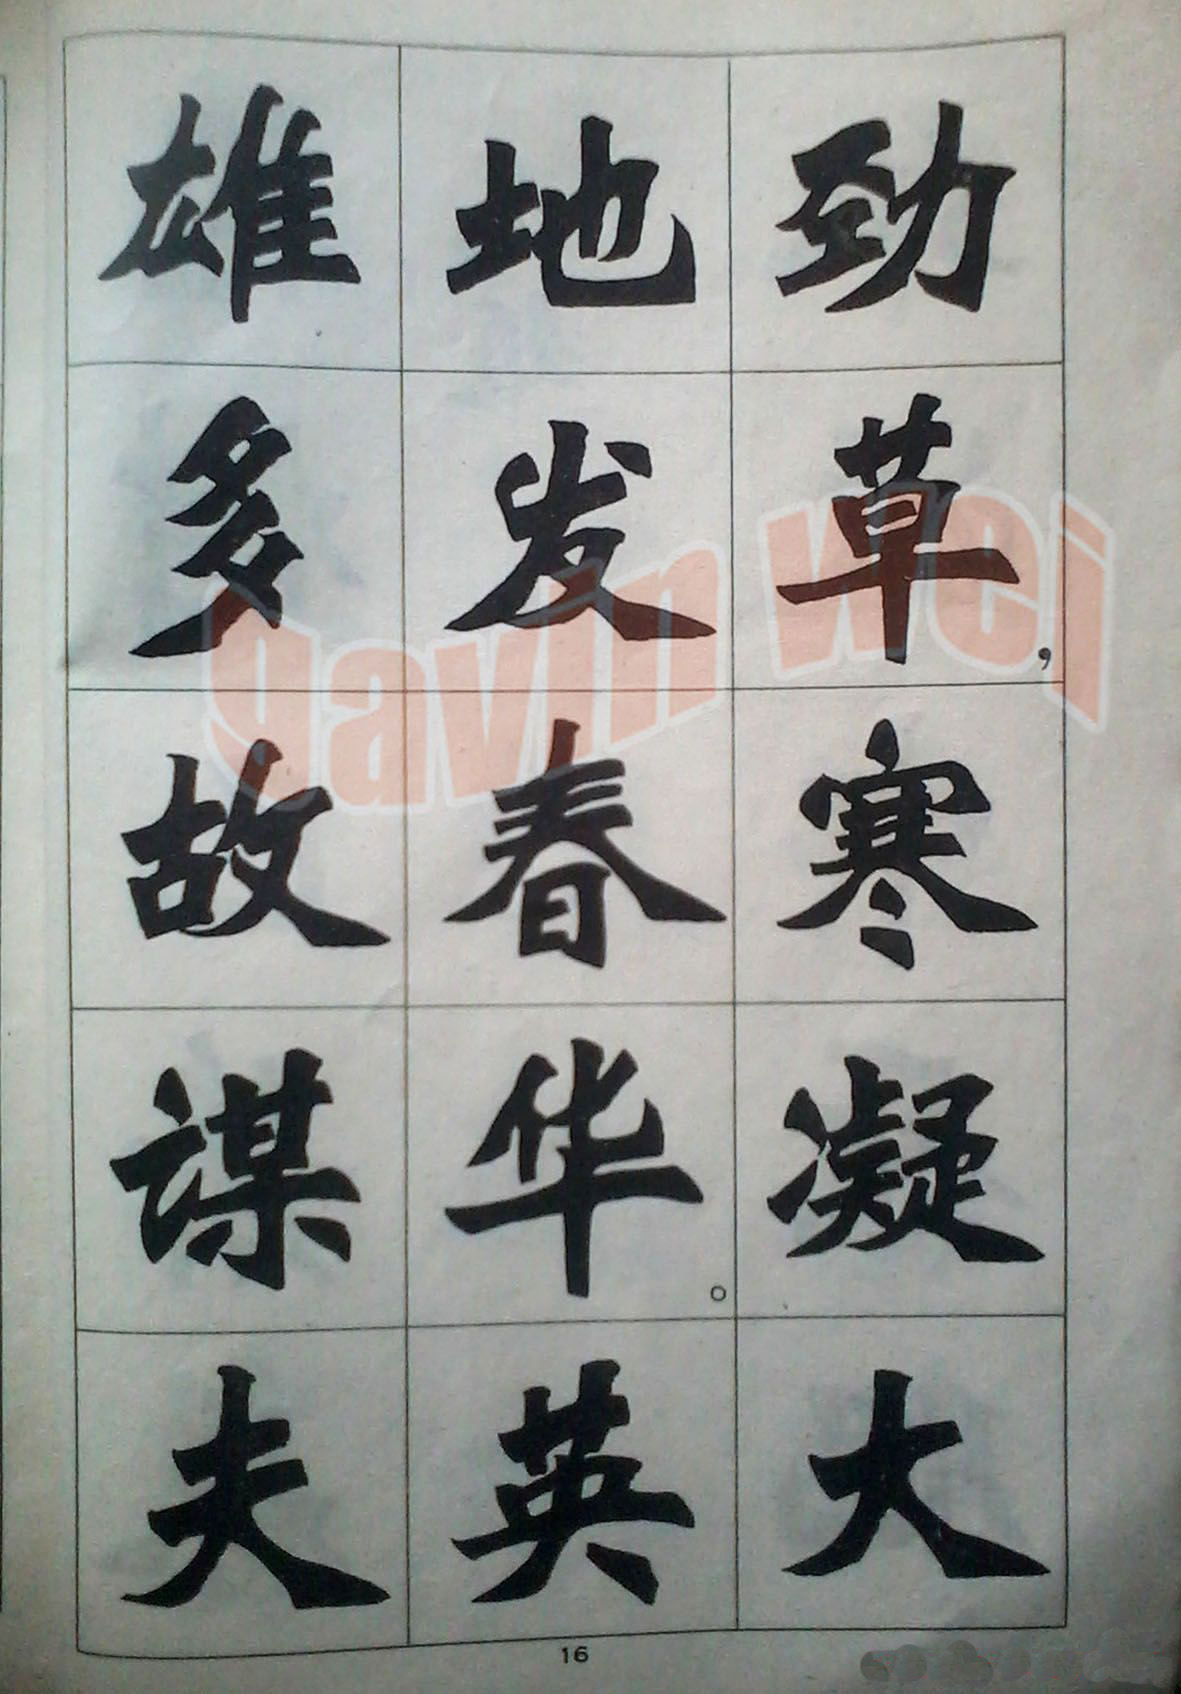 劲草，寒凝大
地发春华。英
雄多故谋夫
16
gavin wei